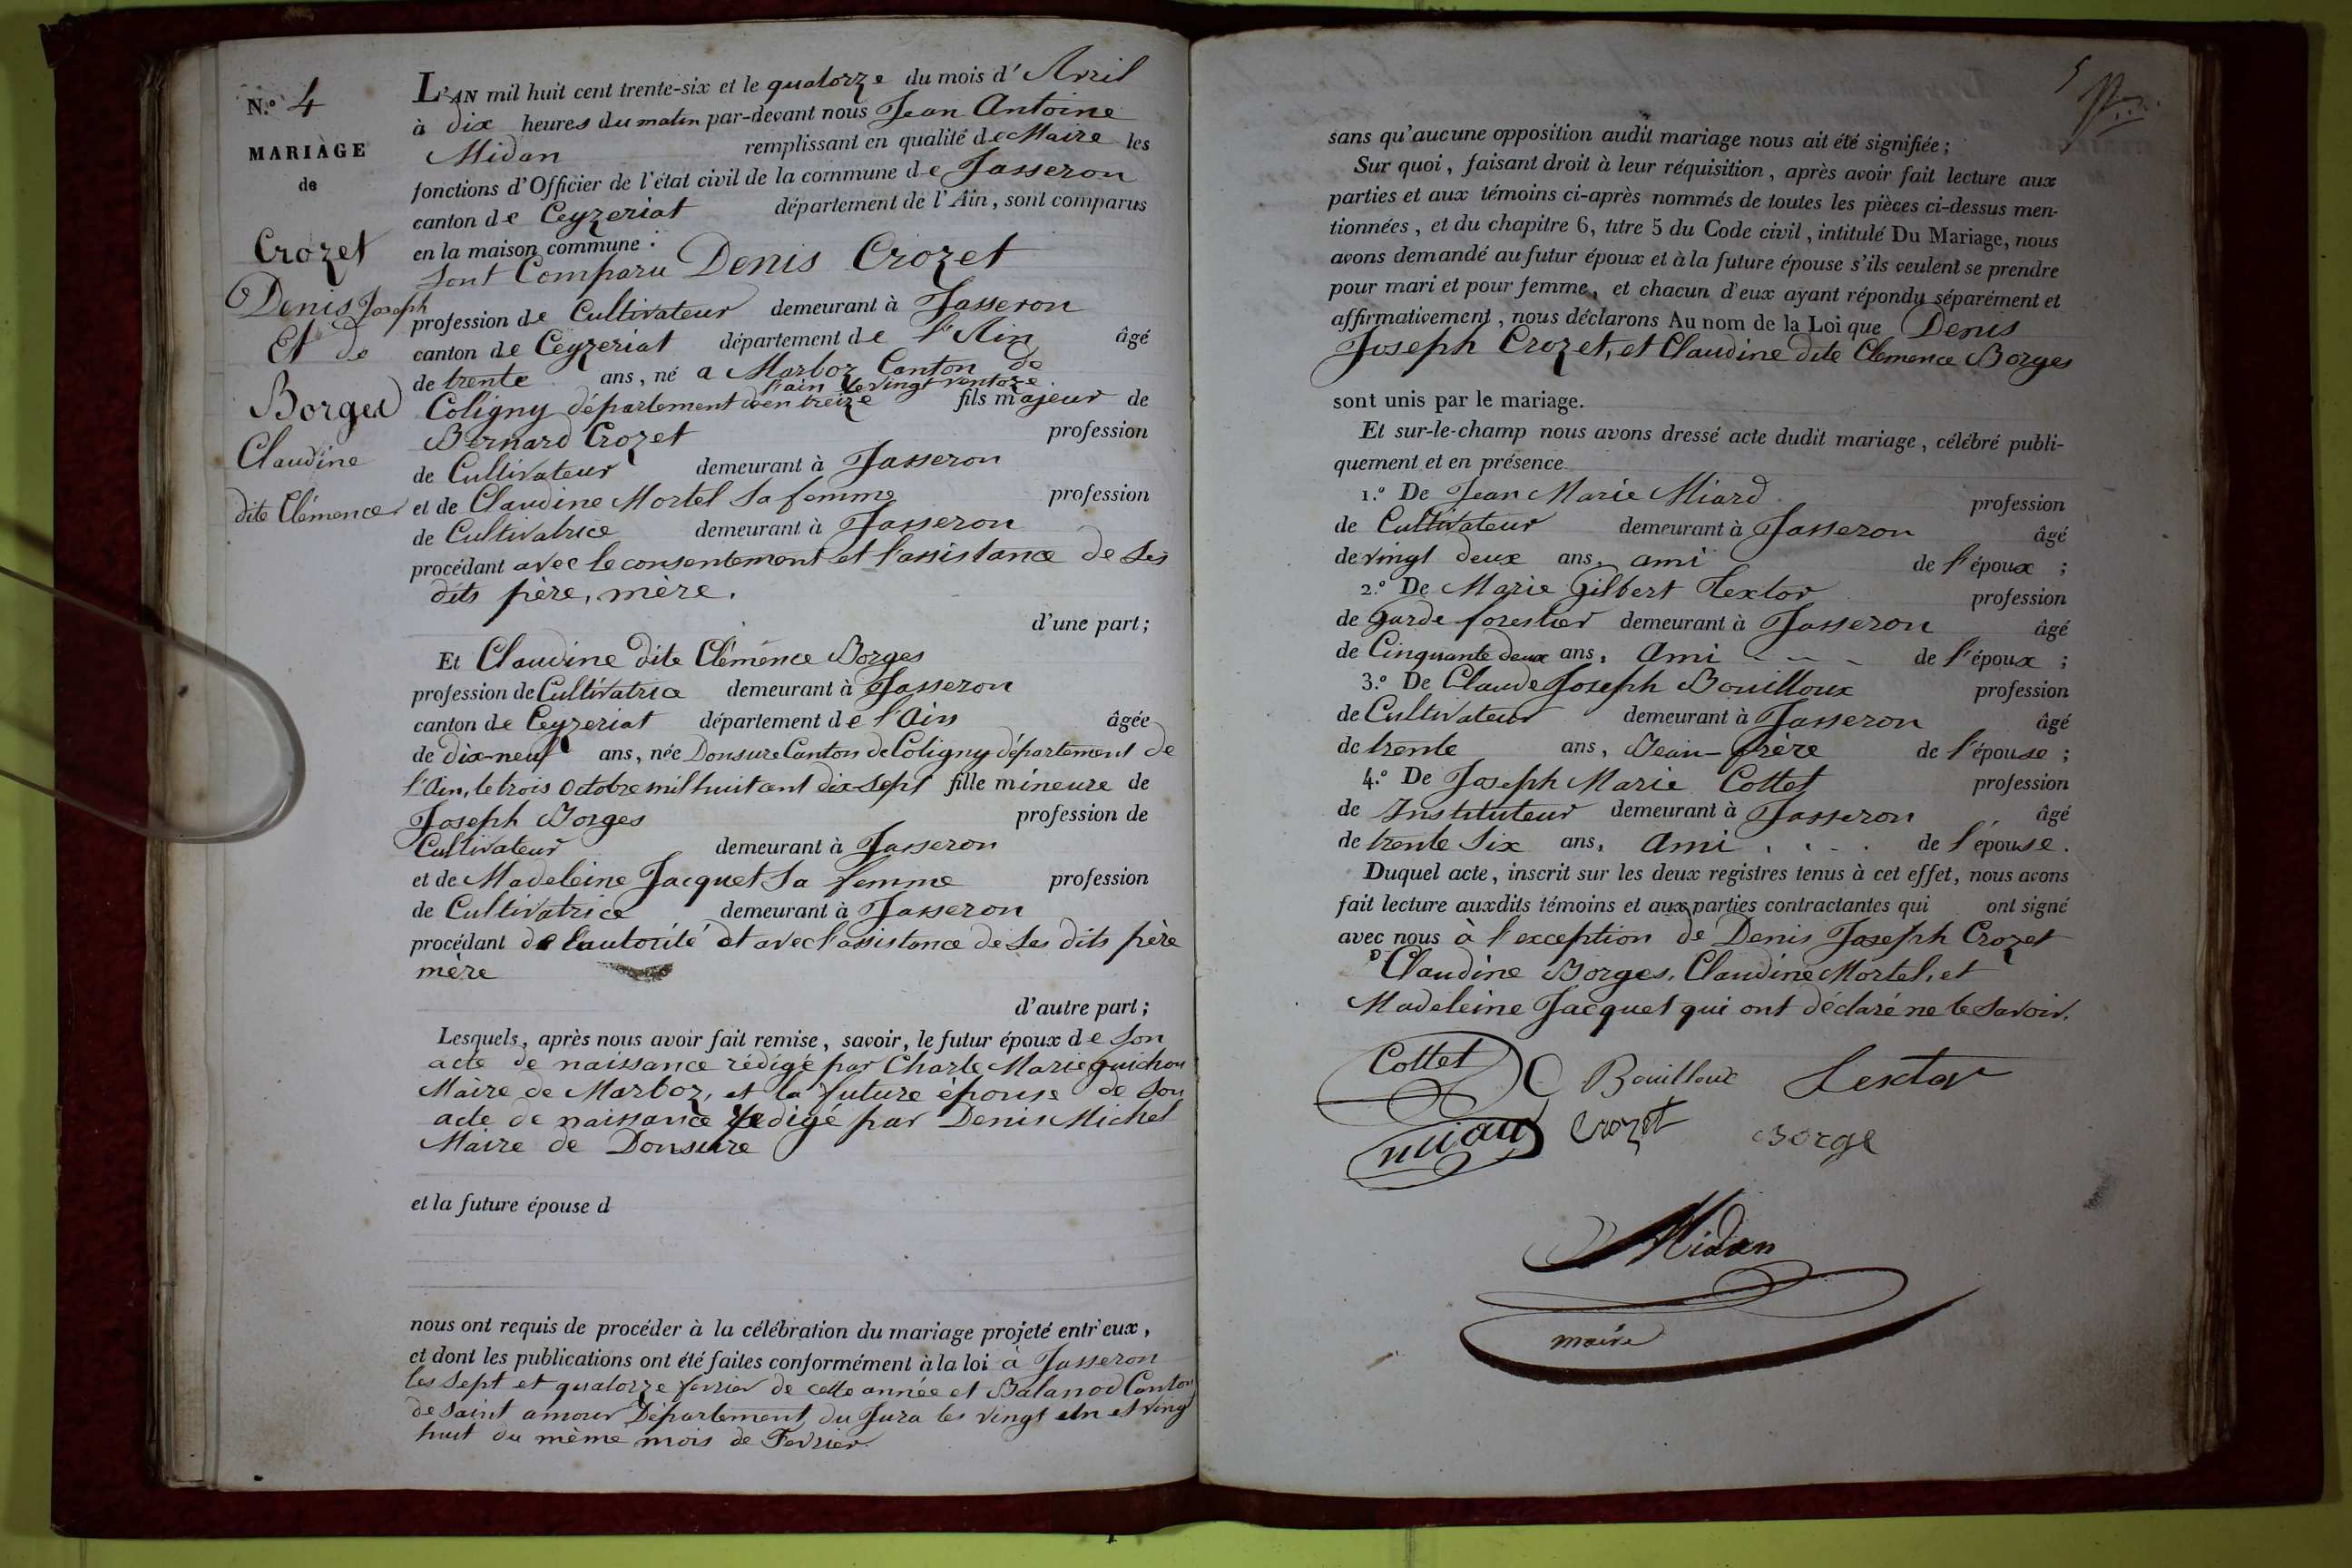 N.° 4
MARIAGE
de
Crozet
Denis Joseph
Et de
Borges
Claudine
dite Clémence
L'AN mil huit cent trente-six et le quatorze du mois d'Avril
à dix heures du matin par-devant nous Jean Antoine
Midan remplissant en qualité de Maire les
fonctions d'Officier de l'état civil de la commune de Jasseron
canton de Ceyzeriat département de l'Ain, sont comparus
en la maison commune :
Sont Comparu Denis Crozet
profession de Cultivateur demeurant à Jasseron
canton de Ceyzeriat département de l'Ain âgé
de trente ans, né a Marboz Canton de
l'ain le vingt ventoze
Coligny département d en treize fils majeur de
Bernard Crozet profession
de Cultivateur demeurant à Jasseron
et de Claudine Mortel Sa femme profession
de Cultivatrice demeurant à Jasseron
procédant avec le consentement et l'assistance de Ses
dits père, mère.
d'une part ;
Et Claudine dite Clémence Borges
profession de Cultivatrice demeurant à Jasseron
canton de Ceyzeriat département de l'Ain âgée
de dix-neuf ans, née Donsure Canton de Coligny département de
l'Ain, le trois Octobre mil huit cent dix-sept fille mineure de
Joseph Borges profession de
Cultivateur demeurant à Jasseron
et de Madeleine Jacquet Sa femme profession
de Cultivatrice demeurant à Jasseron
procédant de l'autorité et avec l'assistance de Ses dits père
mère
d'autre part ;
Lesquels, après nous avoir fait remise, savoir, le futur époux de Son
acte de naissance rédigé par Charle Marie guichon
Maire de Marboz, et la future épouse de Son
acte de naissance redigé par Denis Michel
Maire de Donsure
et la future épouse d
nous ont requis de procéder à la célébration du mariage projeté entr'eux,
et dont les publications ont été faites conformément à la loi à Jasseron
les Sept et quatorze fevrier de cette année et Balanod Canton
de Saint amour Département du Jura les vingt un et vingt
huit du même mois de Fevrier.
5
sans qu'aucune opposition audit mariage nous ait été signifiée ;
Sur quoi, faisant droit à leur réquisition, après avoir fait lecture aux
parties et aux témoins ci-après nommés de toutes les pièces ci-dessus men-
tionnées, et du chapitre 6, titre 5 du Code civil, intitulé Du Mariage, nous
avons demandé au futur époux et à la future épouse s'ils veulent se prendre
pour mari et pour femme, et chacun d'eux ayant répondu séparément et
affirmativement, nous déclarons Au nom de la Loi que Denis
Joseph Crozet, et Claudine dite Clemence Borges
sont unis par le mariage.
Et sur-le-champ nous avons dressé acte dudit mariage, célébré publi-
quement et en présence
1.° De Jean Marie Miard profession
de Cultivateur demeurant à Jasseron âgé
de vingt deux ans, ami de l'époux ;
2.° De Marie Gilbert Textor profession
de Garde forestier demeurant à Jasseron âgé
de Cinquante deux ans, Ami de l'époux ;
3.° De Claude Joseph Bouilloux profession
de Cultivateur demeurant à Jasseron âgé
de trente ans, Beau-frère de l'épouse ;
4.° De Joseph Marie Cottet profession
de Instituteur demeurant à Jasseron âgé
de trente Six ans, Ami de l'épouse.
Duquel acte, inscrit sur les deux registres tenus à cet effet, nous avons
fait lecture auxdits témoins et aux parties contractantes qui ont signé
avec nous à l'exception de Denis Joseph Crozet
Claudine Borges, Claudine Mortel, et
Madeleine Jacquet qui ont déclaré ne le Savoir.
Cottet Bouilloux Textor
Miard Crozet Borge
Midan
maire